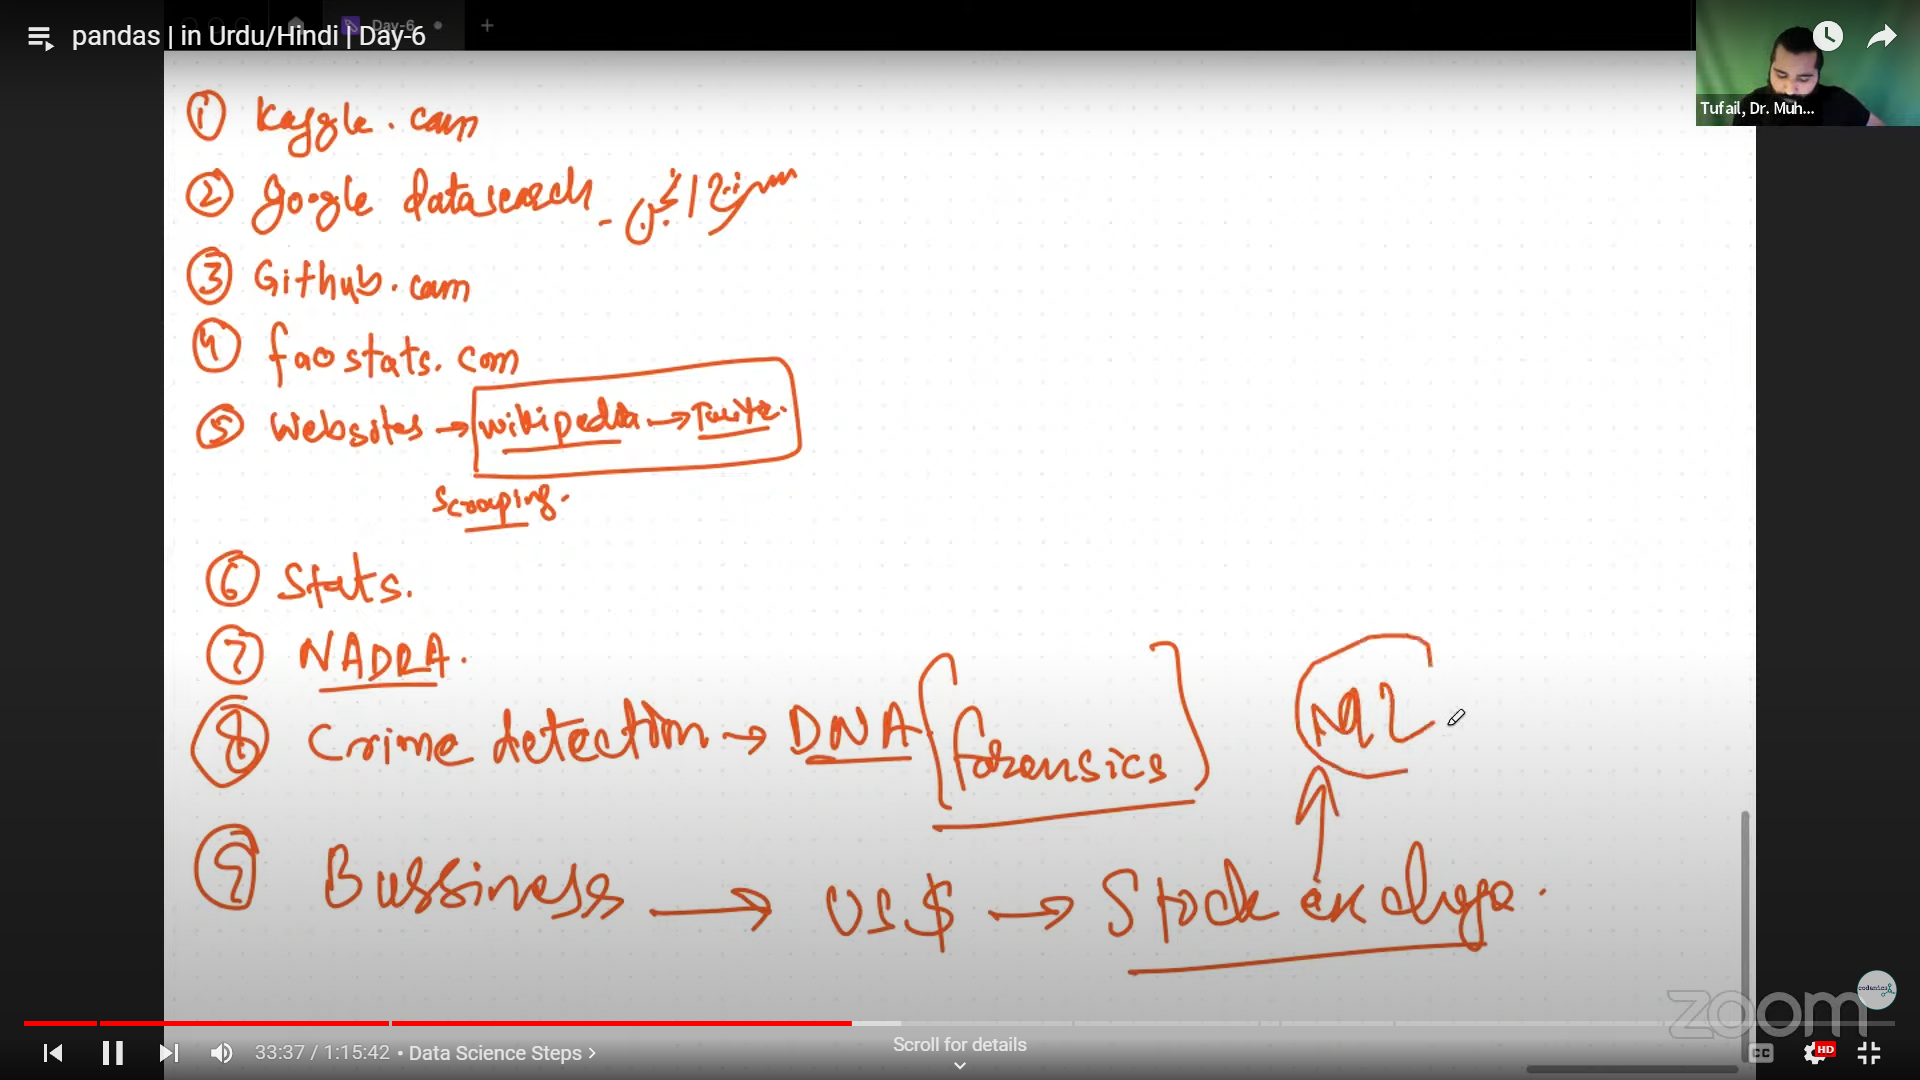 pandas | in Urdu/Hindi | Day-6
Day-6
Tufail, Dr. Muh...
① Kaggle.com
② Google datasearch -
③ Github.com
④ faostats.com
⑤ Websites → wikipedia →
Scraping.
⑥ Stats.
⑦ NADRA.
⑧ Crime detection → DNA [forensics]
⑨ Bussiness → US $ → Stock exchange.
codanics
zoom
33:37 / 1:15:42 • Data Science Steps >
Scroll for details
CC
HD